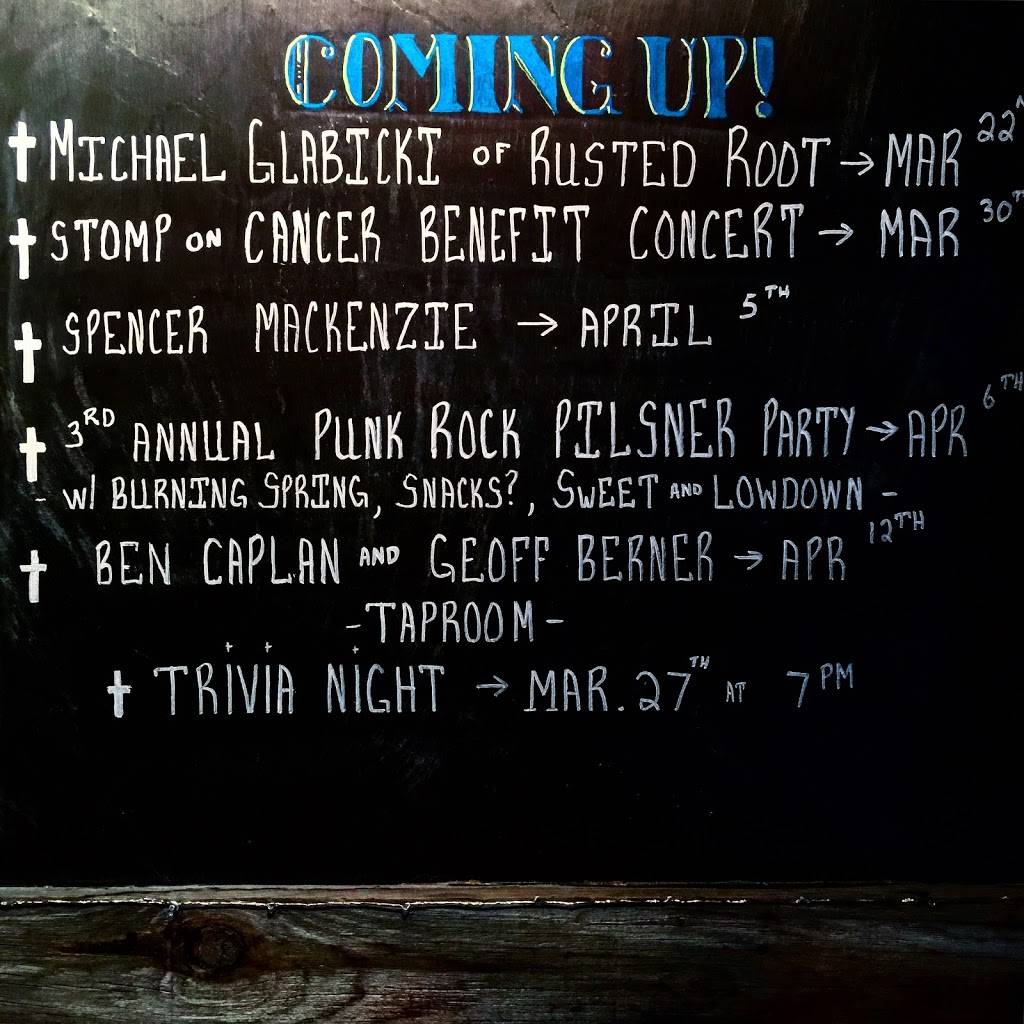 COMING UP!
MICHAEL GLABICKI OF RUSTED ROOT → MAR 22
STOMP ON CANCER BENEFIT CONCERT → MAR 30T
SPENCER MACKENZIE → APRIL 5TH
3RD ANNUAL PUNK ROCK PILSNER PARTY → APR 6TH
- W/ BURNING SPRING, SNACKS?, SWEET AND LOWDOWN -
BEN CAPLAN AND GEOFF BERNER → APR 12TH
- TAPROOM -
TRIVIA NIGHT → MAR. 27TH AT 7 PM